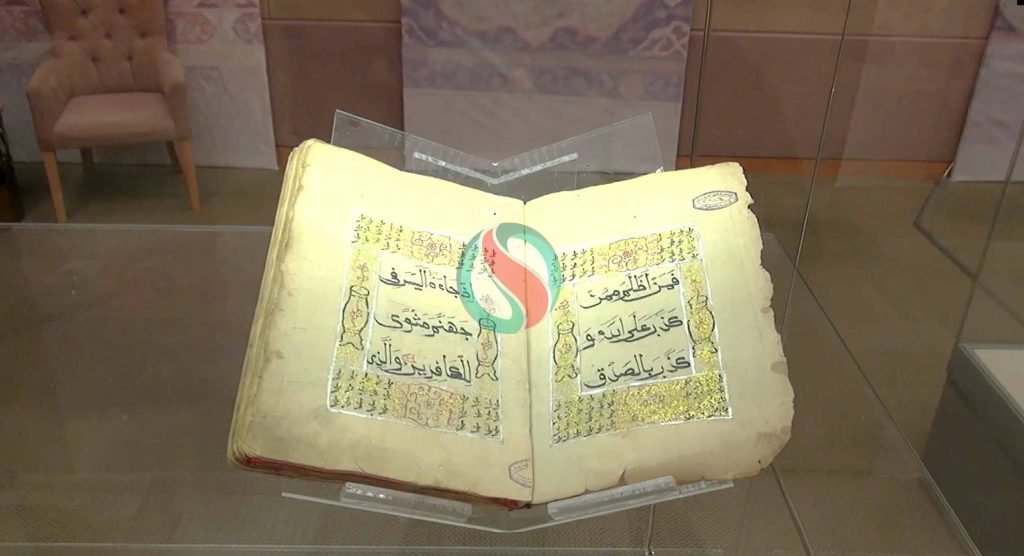 فمن اظلم ممن
كذب على الله و
كذب بالصدق
اذ جاءه اليس فى
جهنم مثوى
للكافرين والذى